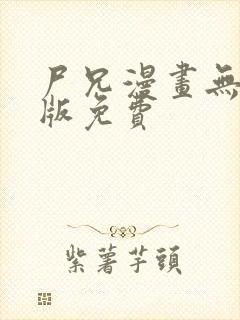 尸兄漫畫無
版免費
紫薯芋頭